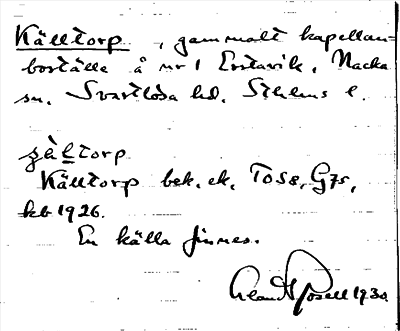 Källtorp, gammalt kapellan-
boställe å nr 1 Erstavik, Nacka
sn, Svartlösa hd, Sthlms l.
källtorp
Källtorp bek. ek. To58, G75,
kb 1926.
En källa finnes.
1930